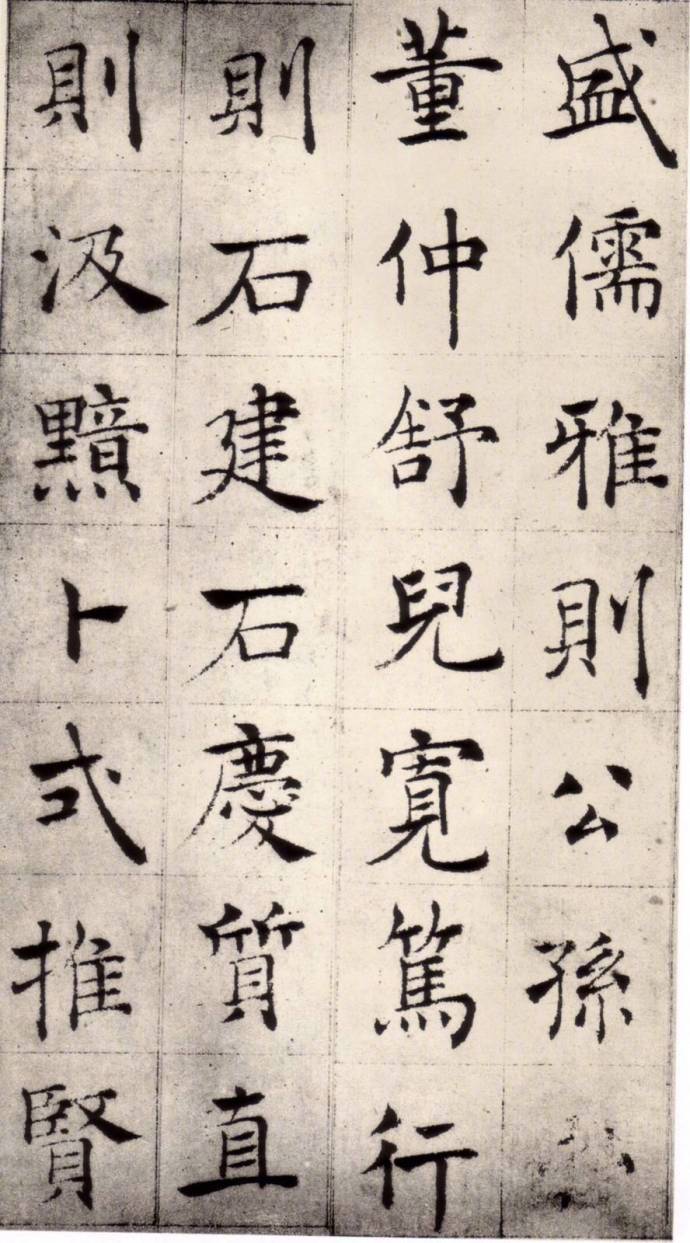 盛儒雅則公孫
董仲舒兒寬篤行
則石建石慶質直
則汲黯卜式推賢